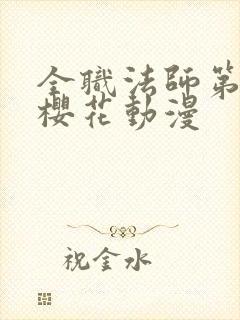 全職法師第
櫻花動漫
祝金水